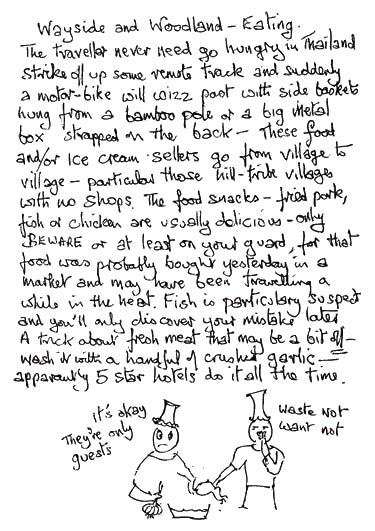 Wayside and Woodland - Eating.
The traveller never need go hungry in Thailand
Strike off up some remote track and suddenly
a motor-bike will wizz past with side baskets
hung from a bamboo pole or a big metal
box strapped on the back - These food
and/or Ice cream sellers go from village to
village - particular those hill-tribe villages
with no shops. The food snacks - fried pork,
fish or chicken are usually delicious - only
BEWARE or at least on your guard, for that
food was probably bought yesterday in a
market and may have been travelling a
while in the heat. Fish is particulary suspect
and you'll only discover your mistake later
A trick about fresh meat that may be a bit off -
wash it with a handful of crushed garlic -
apparently 5 star hotels do it all the time.
it's okay
They're only
guests
Waste not
want not